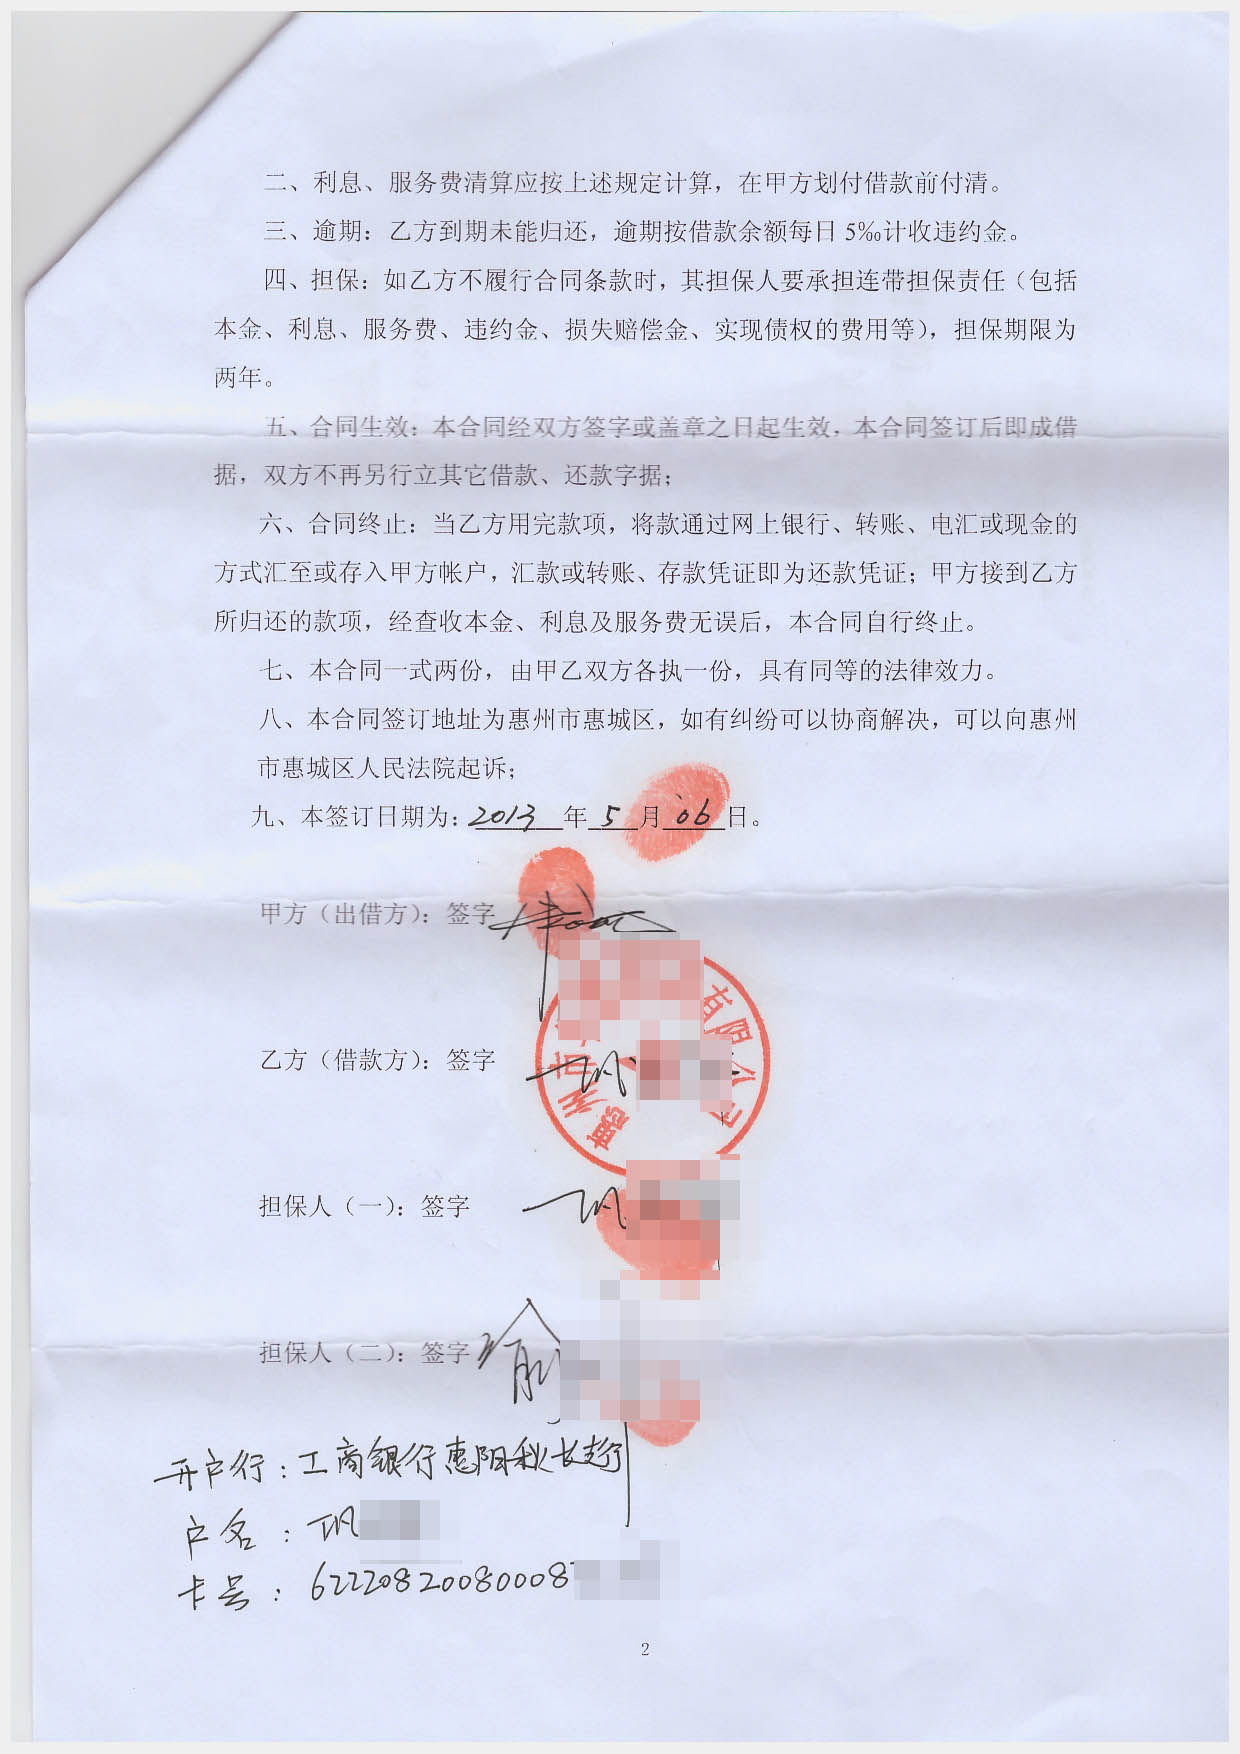 二、利息、服务费清算应按上述规定计算，在甲方划付借款前付清。
三、逾期：乙方到期未能归还，逾期按借款余额每日 5‰计收违约金。
四、担保：如乙方不履行合同条款时，其担保人要承担连带担保责任（包括
本金、利息、服务费、违约金、损失赔偿金、实现债权的费用等），担保期限为
两年。
五、合同生效：本合同经双方签字或盖章之日起生效，本合同签订后即成借
据，双方不再另行立其它借款、还款字据；
六、合同终止：当乙方用完款项，将款通过网上银行、转账、电汇或现金的
方式汇至或存入甲方帐户，汇款或转账、存款凭证即为还款凭证；甲方接到乙方
所归还的款项，经查收本金、利息及服务费无误后，本合同自行终止。
七、本合同一式两份，由甲乙双方各执一份，具有同等的法律效力。
八、本合同签订地址为惠州市惠城区，如有纠纷可以协商解决，可以向惠州
市惠城区人民法院起诉；
九、本签订日期为：2013年5月06日。
甲方（出借方）：签字
惠州市 有限公司
乙方（借款方）：签字
担保人（一）：签字
担保人（二）：签字
开户行：工商银行惠阳秋长支行
户名：
卡号：62220820080008
2